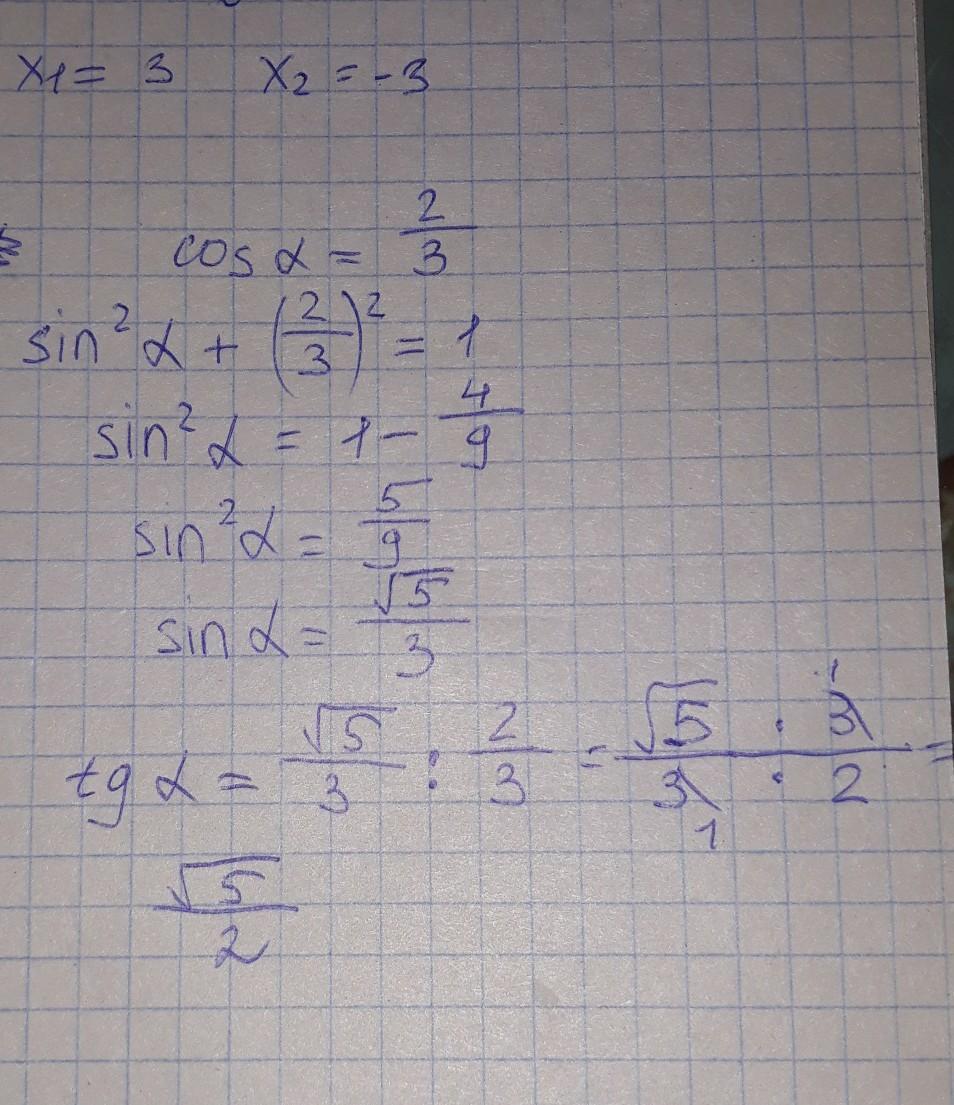 x₁ = 3   x₂ = -3
cos α = 2/3
sin² α + (2/3)² = 1
sin² α = 1 - 4/9
sin² α = 5/9
sin α = √5/3
tg α = √5/3 : 2/3 = √5 · 3/3 · 2 =
√5/2